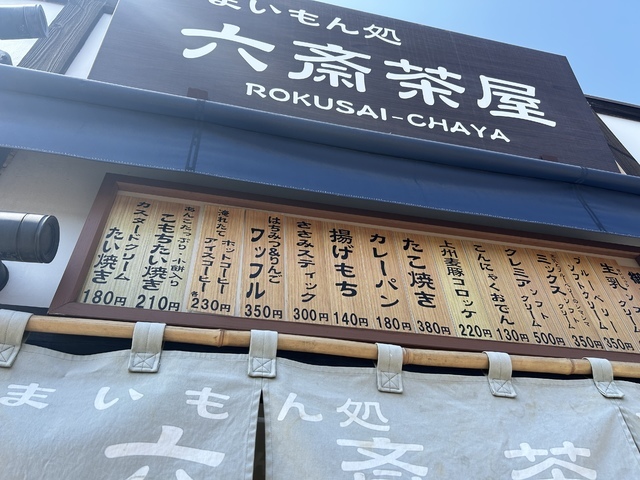 まいもん処
六斎茶屋
ROKUSAI-CHAYA
カスタードクリーム
たい焼き
180円
あんこたっぷり 小餅入り
こもちたい焼き
210円
淹れたて
ホットコーヒー
アイスコーヒー
各230円
はちみつ&りんご
ワッフル
350円
ささみスティック
300円
揚げもち
140円
カレーパン
180円
たこ焼き
380円
上州麦豚コロッケ
220円
こんにゃくおでん
130円
クレミア
ソフト
クリーム
500円
ミックス
ソフト
クリーム
350円
ブルーベリー
ソフト
クリーム
350円
生乳
350円
まいもん処
六斎茶